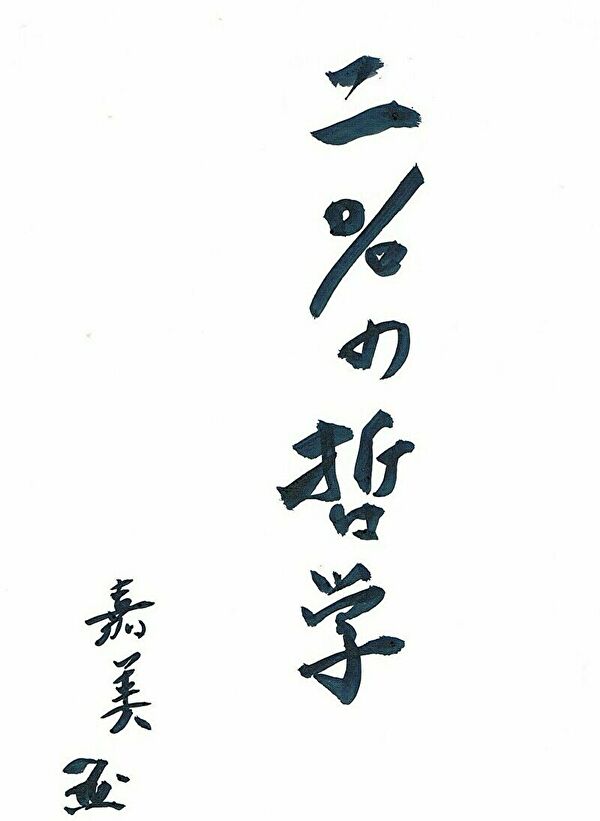 二%の哲学
嘉美